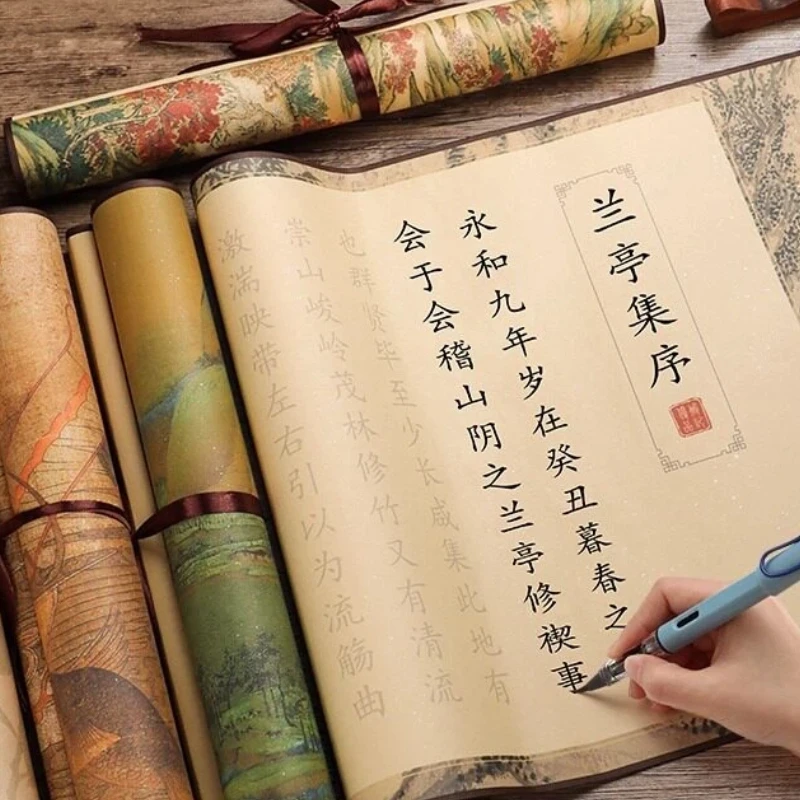 兰亭集序
永和九年岁在癸丑暮春之
会于会稽山阴之兰亭修禊事
也群贤毕至少长咸集此地有
崇山峻岭茂林修竹又有清流
激湍映带左右引以为流觞曲